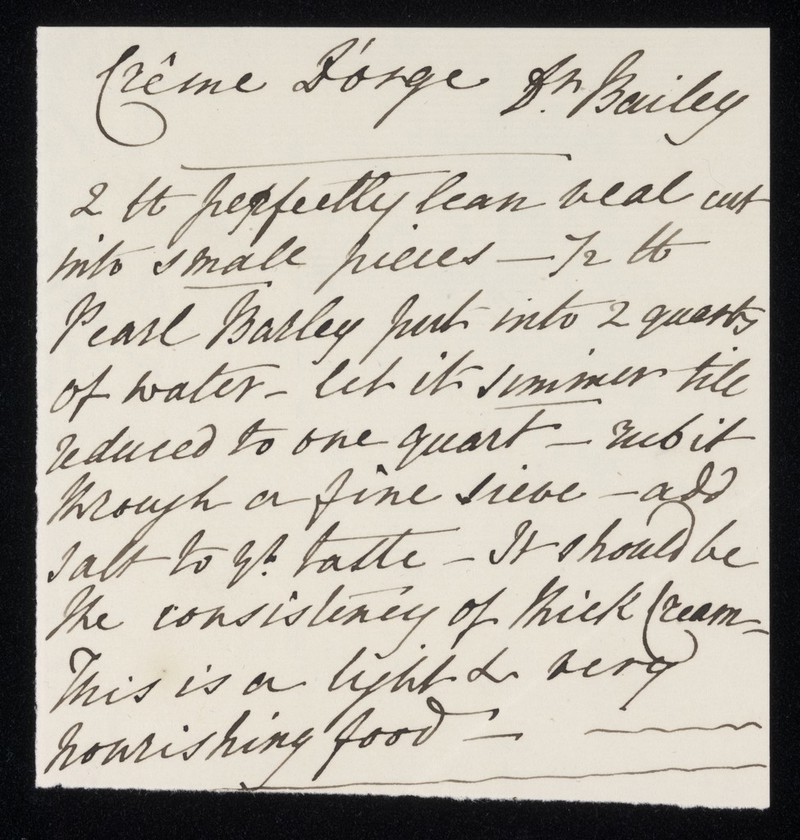 Crême D'orge Dr. Bailey
2 lb perfectly lean veal cut
into small pieces — 1/2 lb
Pearl Barley put into 2 quarts
of water – let it simmer till
reduced to one quart – rub it
through a fine sieve – add
salt to yr. taste – It should be
the consistency of thick Cream –
This is a light & very
nourishing food –